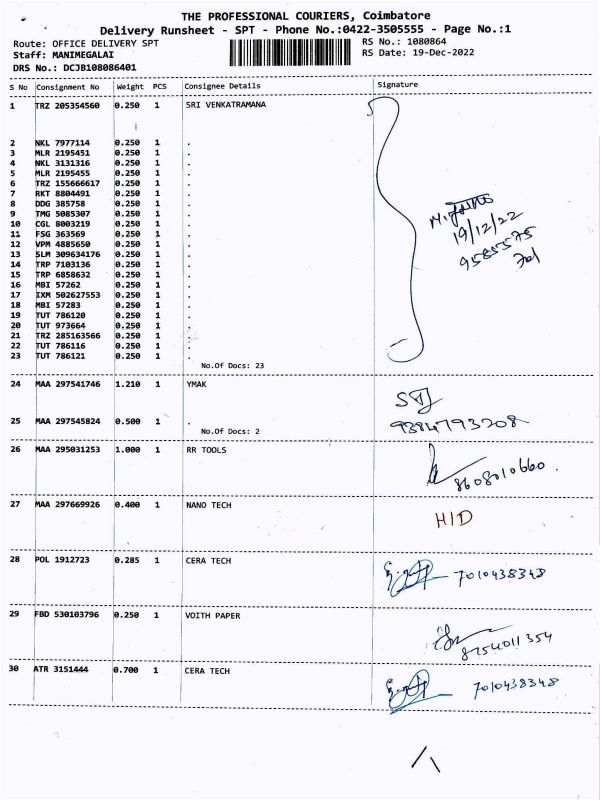 THE PROFESSIONAL COURIERS, Coimbatore
Delivery Runsheet - SPT - Phone No.:0422-3505555 - Page No.:1
Route: OFFICE DELIVERY SPT
RS No.: 1080864
Staff: MANIMEGALAI
RS Date: 19-Dec-2022
DRS No.: DCJB108086401
S No Consignment No Weight PCS Consignee Details Signature
1 TRZ 205354560 0.250 1 SRI VENKATRAMANA
2 NKL 7977114 0.250 1 .
3 MLR 2195451 0.250 1 .
4 NKL 3131316 0.250 1 .
5 MLR 2195455 0.250 1 .
6 TRZ 155666617 0.250 1 .
7 RKT 8804491 0.250 1 .
8 DDG 385758 0.250 1 .
9 TMG 5085307 0.250 1 .
10 CGL 8003219 0.250 1 .
11 FSG 363569 0.250 1 .
12 VPM 4885650 0.250 1 .
13 SLM 309634176 0.250 1 .
14 TRP 7103136 0.250 1 .
15 TRP 6858632 0.250 1 .
16 MBI 57262 0.250 1 .
17 IXM 502627553 0.250 1 .
18 MBI 57283 0.250 1 .
19 TUT 786120 0.250 1 .
20 TUT 973664 0.250 1 .
21 TRZ 285163566 0.250 1 .
22 TUT 786116 0.250 1 .
23 TUT 786121 0.250 1 .
No.Of Docs: 23
19/12/22
24 MAA 297541746 1.210 1 YMAK
25 MAA 297545824 0.500 1 .
No.Of Docs: 2
9384793208
26 MAA 295031253 1.000 1 RR TOOLS
8608010660.
27 MAA 297669926 0.400 1 NANO TECH
H/D
28 POL 1912723 0.285 1 CERA TECH
7010438348
29 FBD 530103796 0.250 1 VOITH PAPER
8754011354
30 ATR 3151444 0.700 1 CERA TECH
7010438348